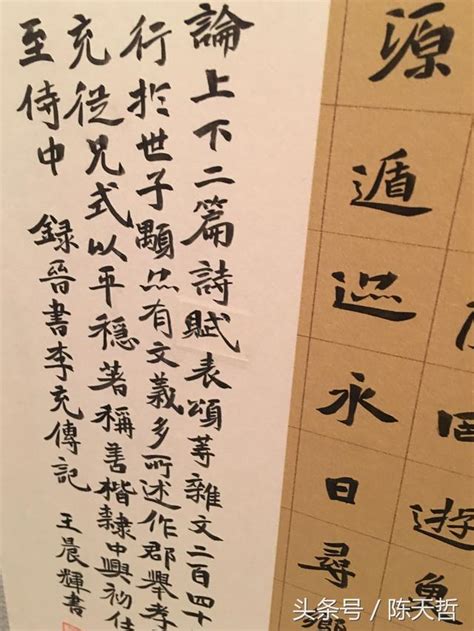 游魚
源遁永日尋鄉
論上下二篇詩賦表頌等雜文二百四十
行於世子顒亦有文義多所述作郡舉孝
充從兄式以平穩著稱善楷隸中興初仕
至侍中 錄晉書李充傳記 王晨輝書
头条号 / 陈天哲